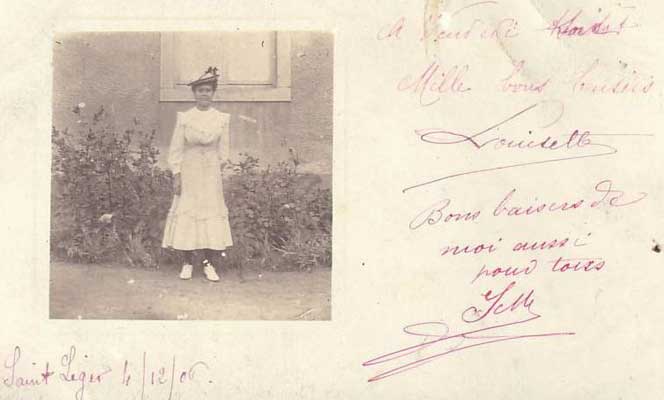 A Vendredi
Mille bons baisers
Louisette
Bons baisers de
moi aussi
pour tous
Saint Leger 4/12/06.